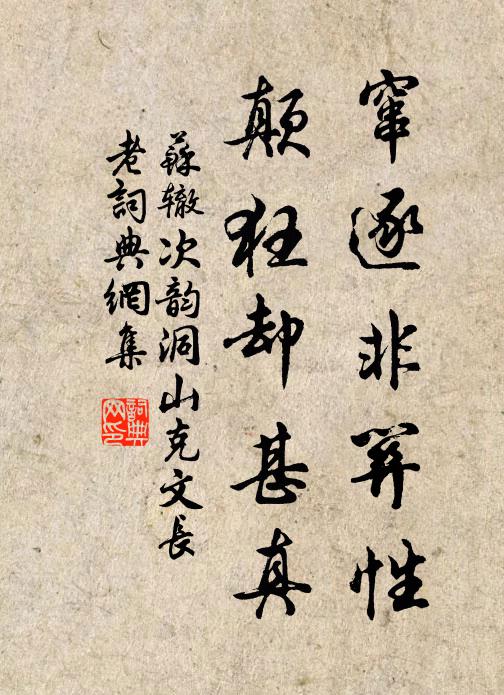 窜逐非関性
颠狂却甚真
蘇辙次韵洞山克文長
老詞典網集
詞典
网印